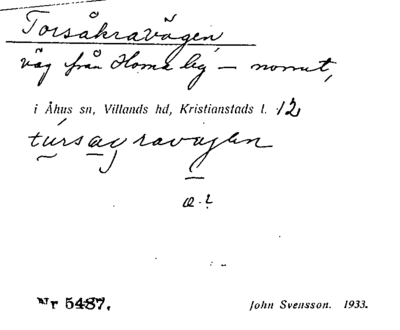 Torsåkravägen
väg från Homa by – norrut,
i Åhus sn, Villands hd, Kristianstads l. 12
tursagravaglen
æ.?
Nr 5487.
John Svensson. 1933.